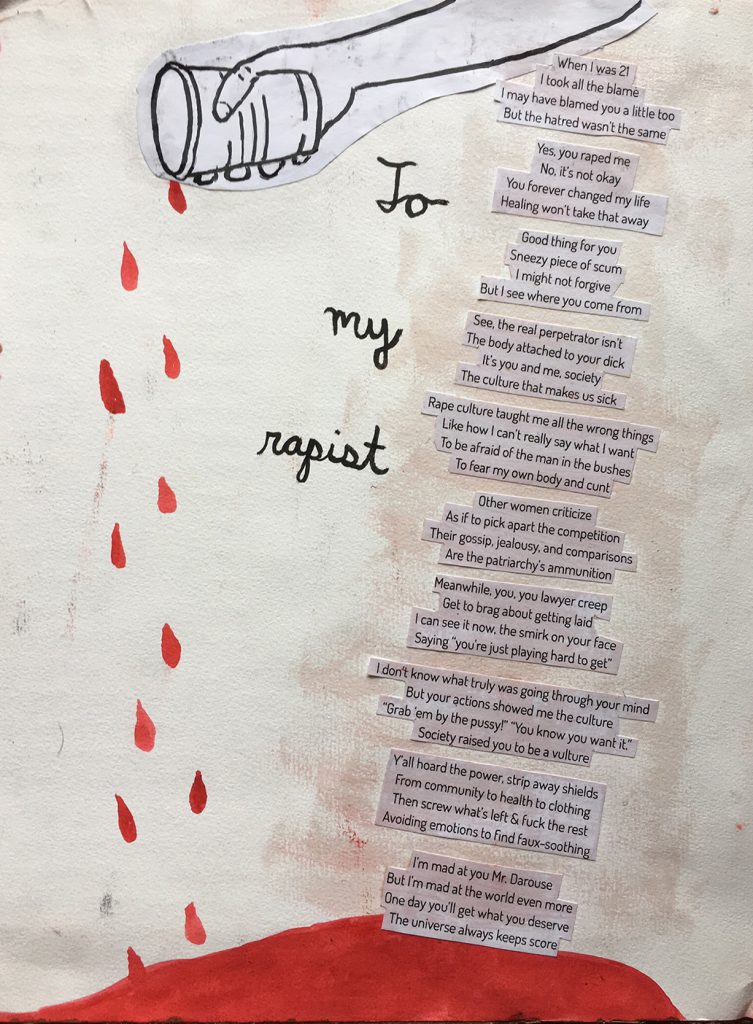 To
my
rapist
When I was 21
I took all the blame
I may have blamed you a little too
But the hatred wasn't the same
Yes, you raped me
No, it's not okay
You forever changed my life
Healing won't take that away
Good thing for you
Sneezy piece of scum
I might not forgive
But I see where you come from
See, the real perpetrator isn't
The body attached to your dick
It's you and me, society
The culture that makes us sick
Rape culture taught me all the wrong things
Like how I can't really say what I want
To be afraid of the man in the bushes
To fear my own body and cunt
Other women criticize
As if to pick apart the competition
Their gossip, jealousy, and comparisons
Are the patriarchy's ammunition
Meanwhile, you, you lawyer creep
Get to brag about getting laid
I can see it now, the smirk on your face
Saying "you're just playing hard to get"
I don't know what truly was going through your mind
But your actions showed me the culture
"Grab 'em by the pussy!" "You know you want it."
Society raised you to be a vulture
Y'all hoard the power, strip away shields
From community to health to clothing
Then screw what's left & fuck the rest
Avoiding emotions to find faux-soothing
I'm mad at you Mr. Darouse
But I'm mad at the world even more
One day you'll get what you deserve
The universe always keeps score